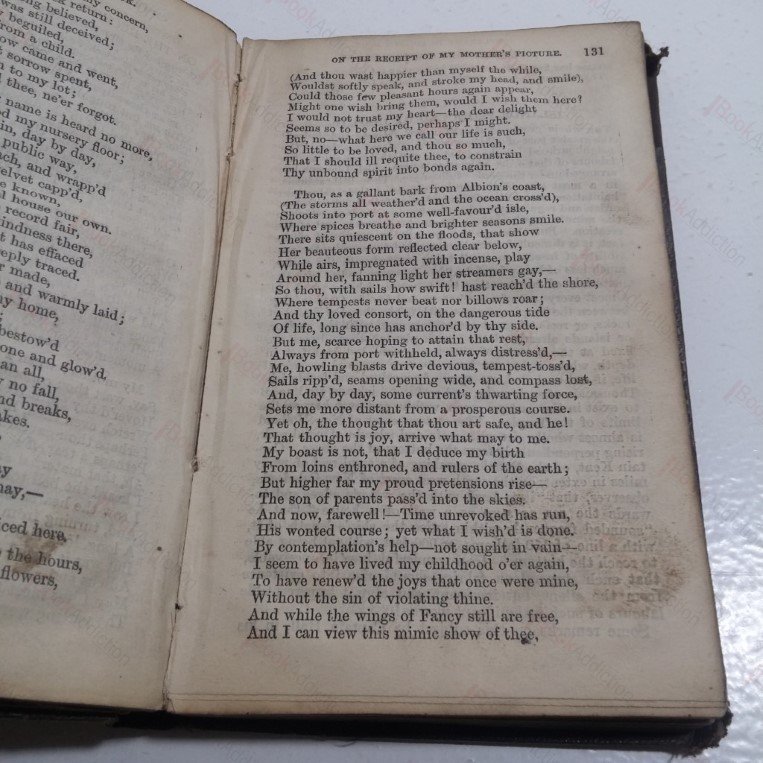 my concern,
return:
believed,
was still deceived;
beguiled,
from a child.
came and went,
sorrow spent,
to my lot;
thee, ne'er forgot.
name is heard no more,
my nursery floor;
day by day,
public way,
and wrapp'd
velvet capp'd,
known,
house our own.
record fair,
kindness there,
has effaced
deeply traced.
made,
and warmly laid;
home,
bestow'd
and glow'd,
all,
no fall,
and breaks,
here,
the hours,
flowers,
ON THE RECEIPT OF MY MOTHER'S PICTURE. 131
(And thou wast happier than myself the while,
Wouldst softly speak, and stroke my head, and smile),
Could those few pleasant hours again appear,
Might one wish bring them, would I wish them here?
I would not trust my heart—the dear delight
Seems so to be desired, perhaps I might.
But, no—what here we call our life is such,
So little to be loved, and thou so much,
That I should ill requite thee, to constrain
Thy unbound spirit into bonds again.
Thou, as a gallant bark from Albion's coast,
(The storms all weather'd and the ocean cross'd),
Shoots into port at some well-favour'd isle,
Where spices breathe and brighter seasons smile.
There sits quiescent on the floods, that show
Her beauteous form reflected clear below,
While airs, impregnated with incense, play
Around her, fanning light her streamers gay,—
So thou, with sails how swift! hast reach'd the shore,
Where tempests never beat nor billows roar;
And thy loved consort, on the dangerous tide
Of life, long since has anchor'd by thy side.
But me, scarce hoping to attain that rest,
Always from port withheld, always distress'd,—
Me, howling blasts drive devious, tempest-toss'd,
Sails ripp'd, seams opening wide, and compass lost,
And, day by day, some current's thwarting force,
Sets me more distant from a prosperous course.
Yet oh, the thought that thou art safe, and he!
That thought is joy, arrive what may to me.
My boast is not, that I deduce my birth
From loins enthroned, and rulers of the earth;
But higher far my proud pretensions rise—
The son of parents pass'd into the skies.
And now, farewell!—Time unrevoked has run,
His wonted course; yet what I wish'd is done.
By contemplation's help—not sought in vain—
I seem to have lived my childhood o'er again,
To have renew'd the joys that once were mine,
Without the sin of violating thine.
And while the wings of Fancy still are free,
And I can view this mimic show of thee,